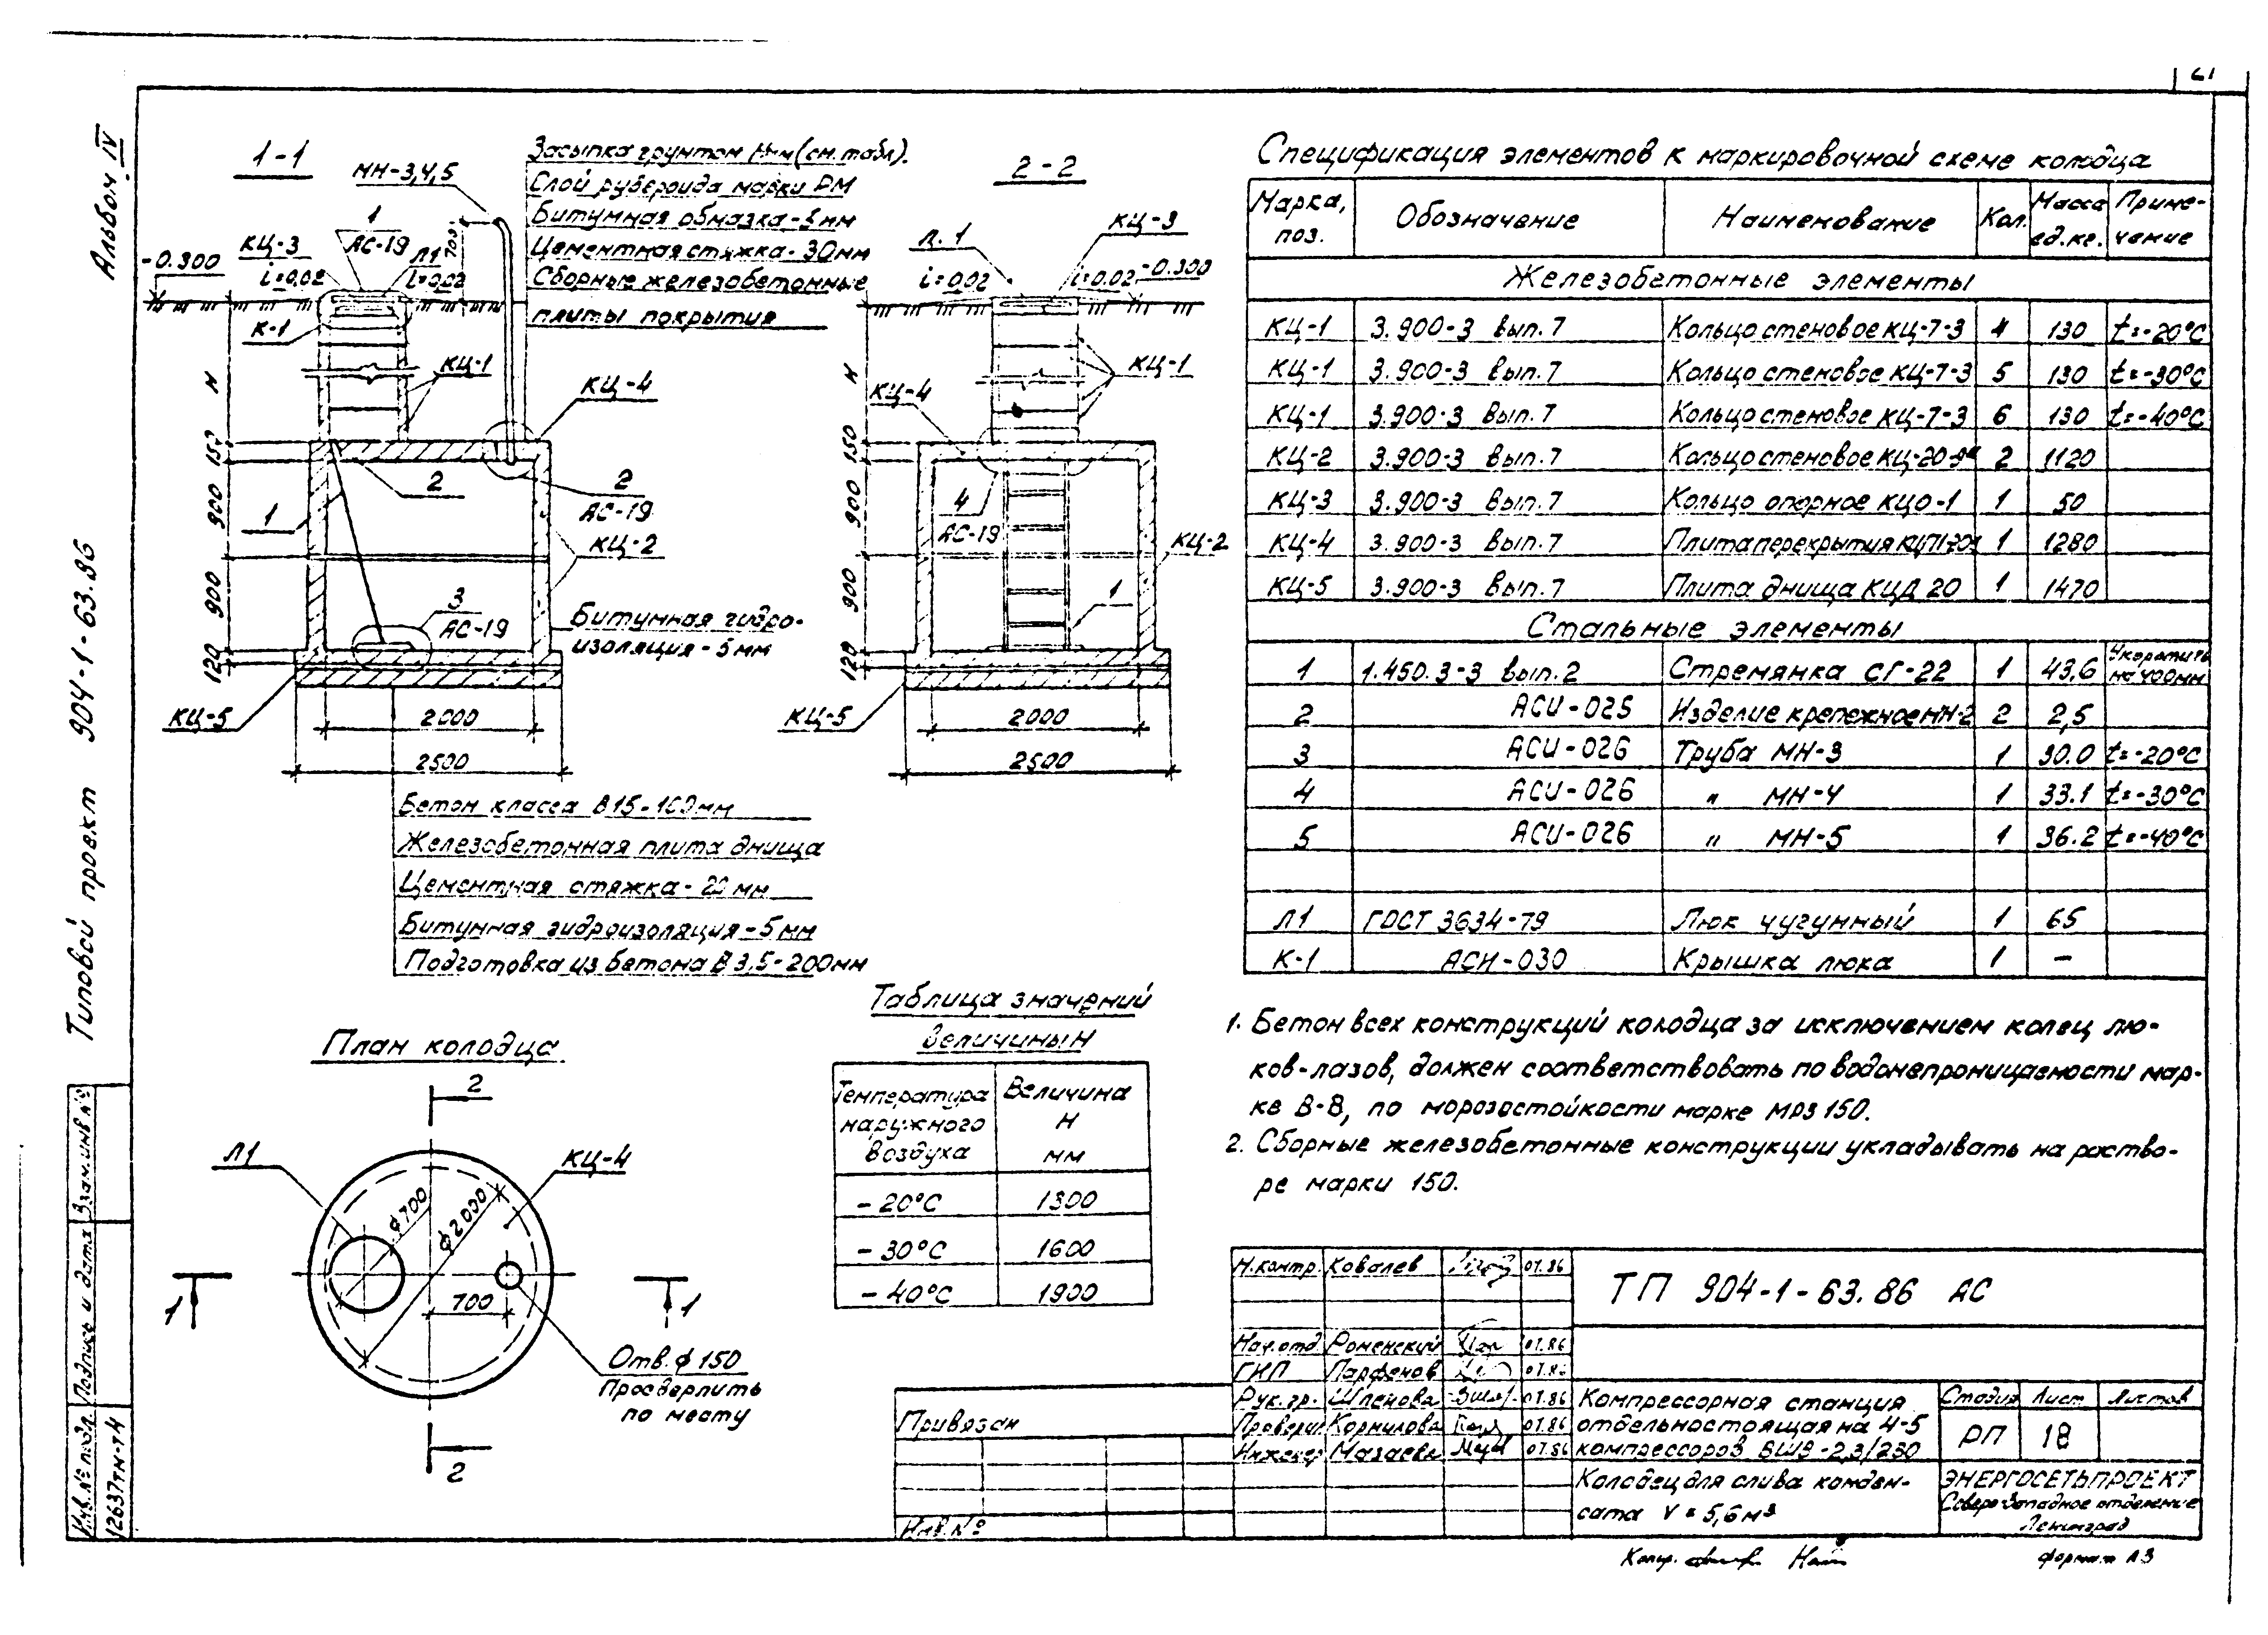 Альбом IV
Типовой проект 904-1-63.86
Взам.инв.№
Подпись и дата
Инв.№ подл.
12637тм-т4
1-1
МН-3,4,5
1
АС-19
КЦ-3
Л1
700
-0.300
i=0,02
i=0,02
К-1
КЦ-1
H
КЦ-4
150
2
2
АС-19
900
1
КЦ-2
900
3
АС-19
120
Битумная гидро-
изоляция-5мм
КЦ-5
2000
2500
Засыпка грунтом Нмм (см.табл).
Слой рубероида марки РМ
Битумная обмазка-5мм
Цементная стяжка-30мм
Сборные железобетонные
плиты покрытия
Бетон класса В15-100мм
Железобетонная плита днища
Цементная стяжка-20мм
Битумная гидроизоляция-5мм
Подготовка из бетона В3,5-200мм
2-2
КЦ-3
Л.1
i=0,02
i=0,02
-0.300
H
КЦ-1
КЦ-4
150
900
4
АС-19
КЦ-2
900
1
120
КЦ-5
2000
2500
План колодца
2
Л1
КЦ-4
ф700
ф2000
700
1
1
Отв. ф150
Просверлить
по месту
2
Таблица значений
величины Н
Температура наружного воздуха
Величина Н мм
-20°С 1300
-30°С 1600
-40°С 1900
Спецификация элементов к маркировочной схеме колодца
Марка, поз. Обозначение Наименование Кол. Масса ед.кг. Приме-чание
Железобетонные элементы
КЦ-1 3.900-3 вып.7 Кольцо стеновое КЦ-7-3 4 130 t=-20°С
КЦ-1 3.900-3 вып.7 Кольцо стеновое КЦ-7-3 5 130 t=-30°С
КЦ-1 3.900-3 вып.7 Кольцо стеновое КЦ-7-3 6 130 t=-40°С
КЦ-2 3.900-3 вып.7 Кольцо стеновое 2 1120
КЦ-3 3.900-3 вып.7 Кольцо опорное КЦО-1 1 50
КЦ-4 3.900-3 вып.7 Плита перекрытия 1 1280
КЦ-5 3.900-3 вып.7 Плита днища КЦД 20 1 1470
Стальные элементы
1 1.450.3-3 вып.2 Стремянка СГ-22 1 43,6 Укоротить на 400мм
2 АСИ-025 Изделие крепежное МН-2 2 2,5
3 АСИ-026 Труба МН-3 1 30.0 t=-20°С
4 АСИ-026 " МН-4 1 33.1 t=-30°С
5 АСИ-026 " МН-5 1 36.2 t=-40°С
Л1 ГОСТ 3634-79 Люк чугунный 1 65
К-1 АСИ-030 Крышка люка 1 -
1. Бетон всех конструкций колодца за исключением колец лю-
ков-лазов, должен соответствовать по водонепроницаемости мар-
ке В-8, по морозостойкости марке МРЗ 150.
2. Сборные железобетонные конструкции укладывать на раство-
ре марки 150.
Н.контр. Ковалев 07.86
Нач.отд. Роменский 07.86
ГИП Парфенов 07.86
Рук.гр. Шленова 07.86
Проверил Корнилова 07.86
Инженер Мазаева 07.86
ТП 904-1-63.86 АС
Компрессорная станция
отдельностоящая на 4-5
компрессоров ВШВ-2,3/230
Стадия Лист Листов
РП 18
Колодец для слива конден-
сата V=5,6м³
ЭНЕРГОСЕТЬПРОЕКТ
Северо-Западное отделение
Ленинград
Привязан
Инв.№
Копир.
Формат А3